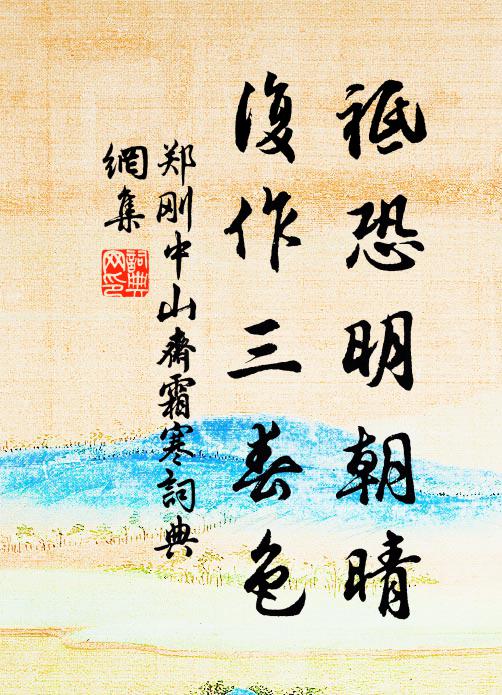 祗恐明朝晴
復作三春色
郑刚中山齋霜寒詞典
網集
詞典
网印